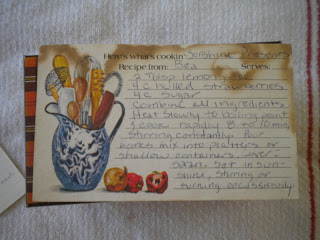 Here's what's cookin' Sunshine Preserves
Recipe from: Bea Serves:
2 Tbsp lemon
4 c hulled strawberries
4 c sugar
Combine all ingredients
Heat slowly to boiling point
& cook rapidly 8 to 10 min,
stirring constantly. Pour
mix into platters or
shallow containers,
Set in sun-
shine, stirring or
turning occasionally